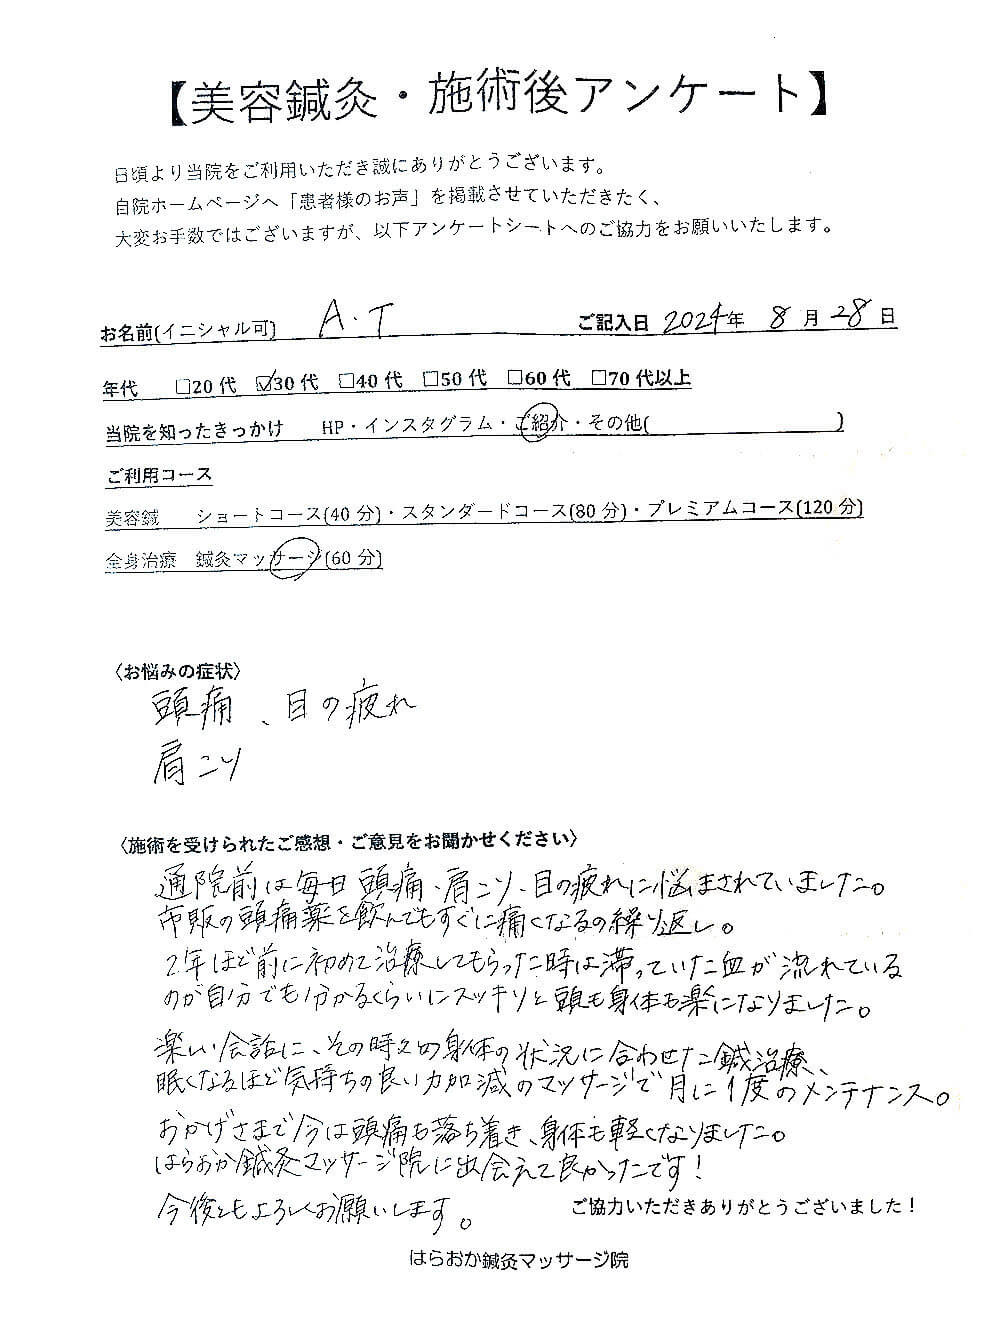 【美容鍼灸・施術後アンケート】
日頃より当院をご利用いただき誠にありがとうございます。
自院ホームページへ「患者様のお声」を掲載させていただきたく、
大変お手数ではございますが、以下アンケートシートへのご協力をお願いいたします。
お名前(イニシャル可) A.T ご記入日 2024年 8月28日
年代 □20代 ☑30代 □40代 □50代 □60代 □70代以上
当院を知ったきっかけ HP・インスタグラム・ご紹介・その他( )
ご利用コース
美容鍼 ショートコース(40分)・スタンダードコース(80分)・プレミアムコース(120分)
全身治療 鍼灸マッサージ(60分)
〈お悩みの症状〉
頭痛、目の疲れ
肩こり
〈施術を受けられたご感想・ご意見をお聞かせください〉
通院前は毎日頭痛、肩こり、目の疲れに悩まされていました。
市販の頭痛薬を飲んでもすぐに痛くなるの繰り返し。
2年ほど前に初めて治療してもらった時は滞っていた血が流れている
のが自分でも分かるくらいにスッキリと頭も身体も楽になりました。
楽しい会話に、その時々の身体の状況に合わせた鍼治療、
眠くなるほど気持ちの良い力加減のマッサージで月に1度のメンテナンス。
おかげさまで今は頭痛も落ち着き、身体も軽くなりました。
はらおか鍼灸マッサージ院に出会えて良かったです!
今後ともよろしくお願いします。
ご協力いただきありがとうございました!
はらおか鍼灸マッサージ院